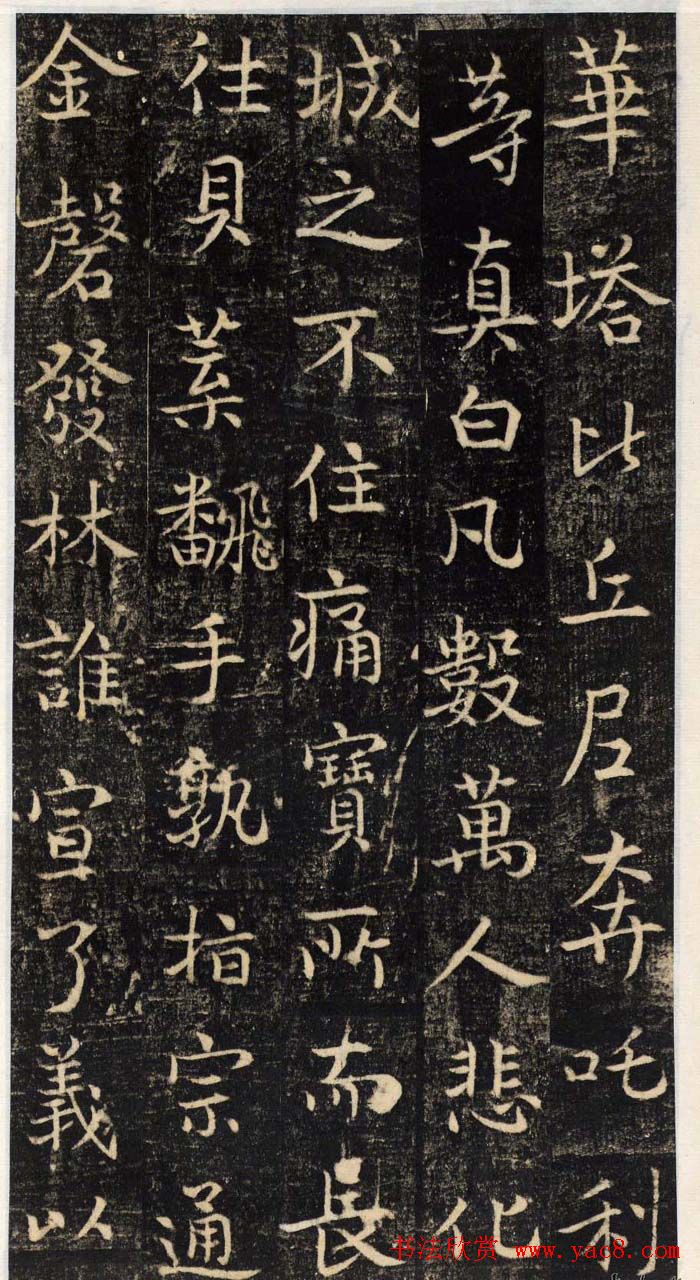 華塔比丘尼奔吒利
等真白凡數萬人悲化
城之不住痛寶所而長
往貝葉翻手孰指宗通
金磬發林誰宣了義以
书法欣赏 www.yac8.com